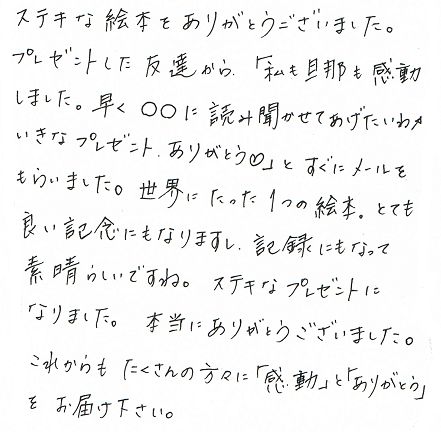 ステキな絵本をありがとうございました。
プレゼントした友達から、「私も旦那も感動
しました。早く○○に読み聞かせてあげたいわ♪
いきなプレゼント、ありがとう♡」とすぐにメールを
もらいました。世界にたった1つの絵本。とても
良い記念にもなりますし、記録にもなって
素晴らしいですね。ステキなプレゼントに
なりました。本当にありがとうございました。
これからもたくさんの方々に「感動」と「ありがとう」
をお届け下さい。